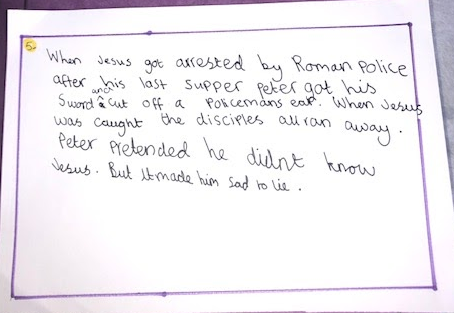 5.
When Jesus got arrested by Roman Police
after his last supper Peter got his
Sword and cut off a Policemans ear. When Jesus
was caught the disciples all ran away.
Peter Pretended he didnt know
Jesus. But It made him sad to lie.